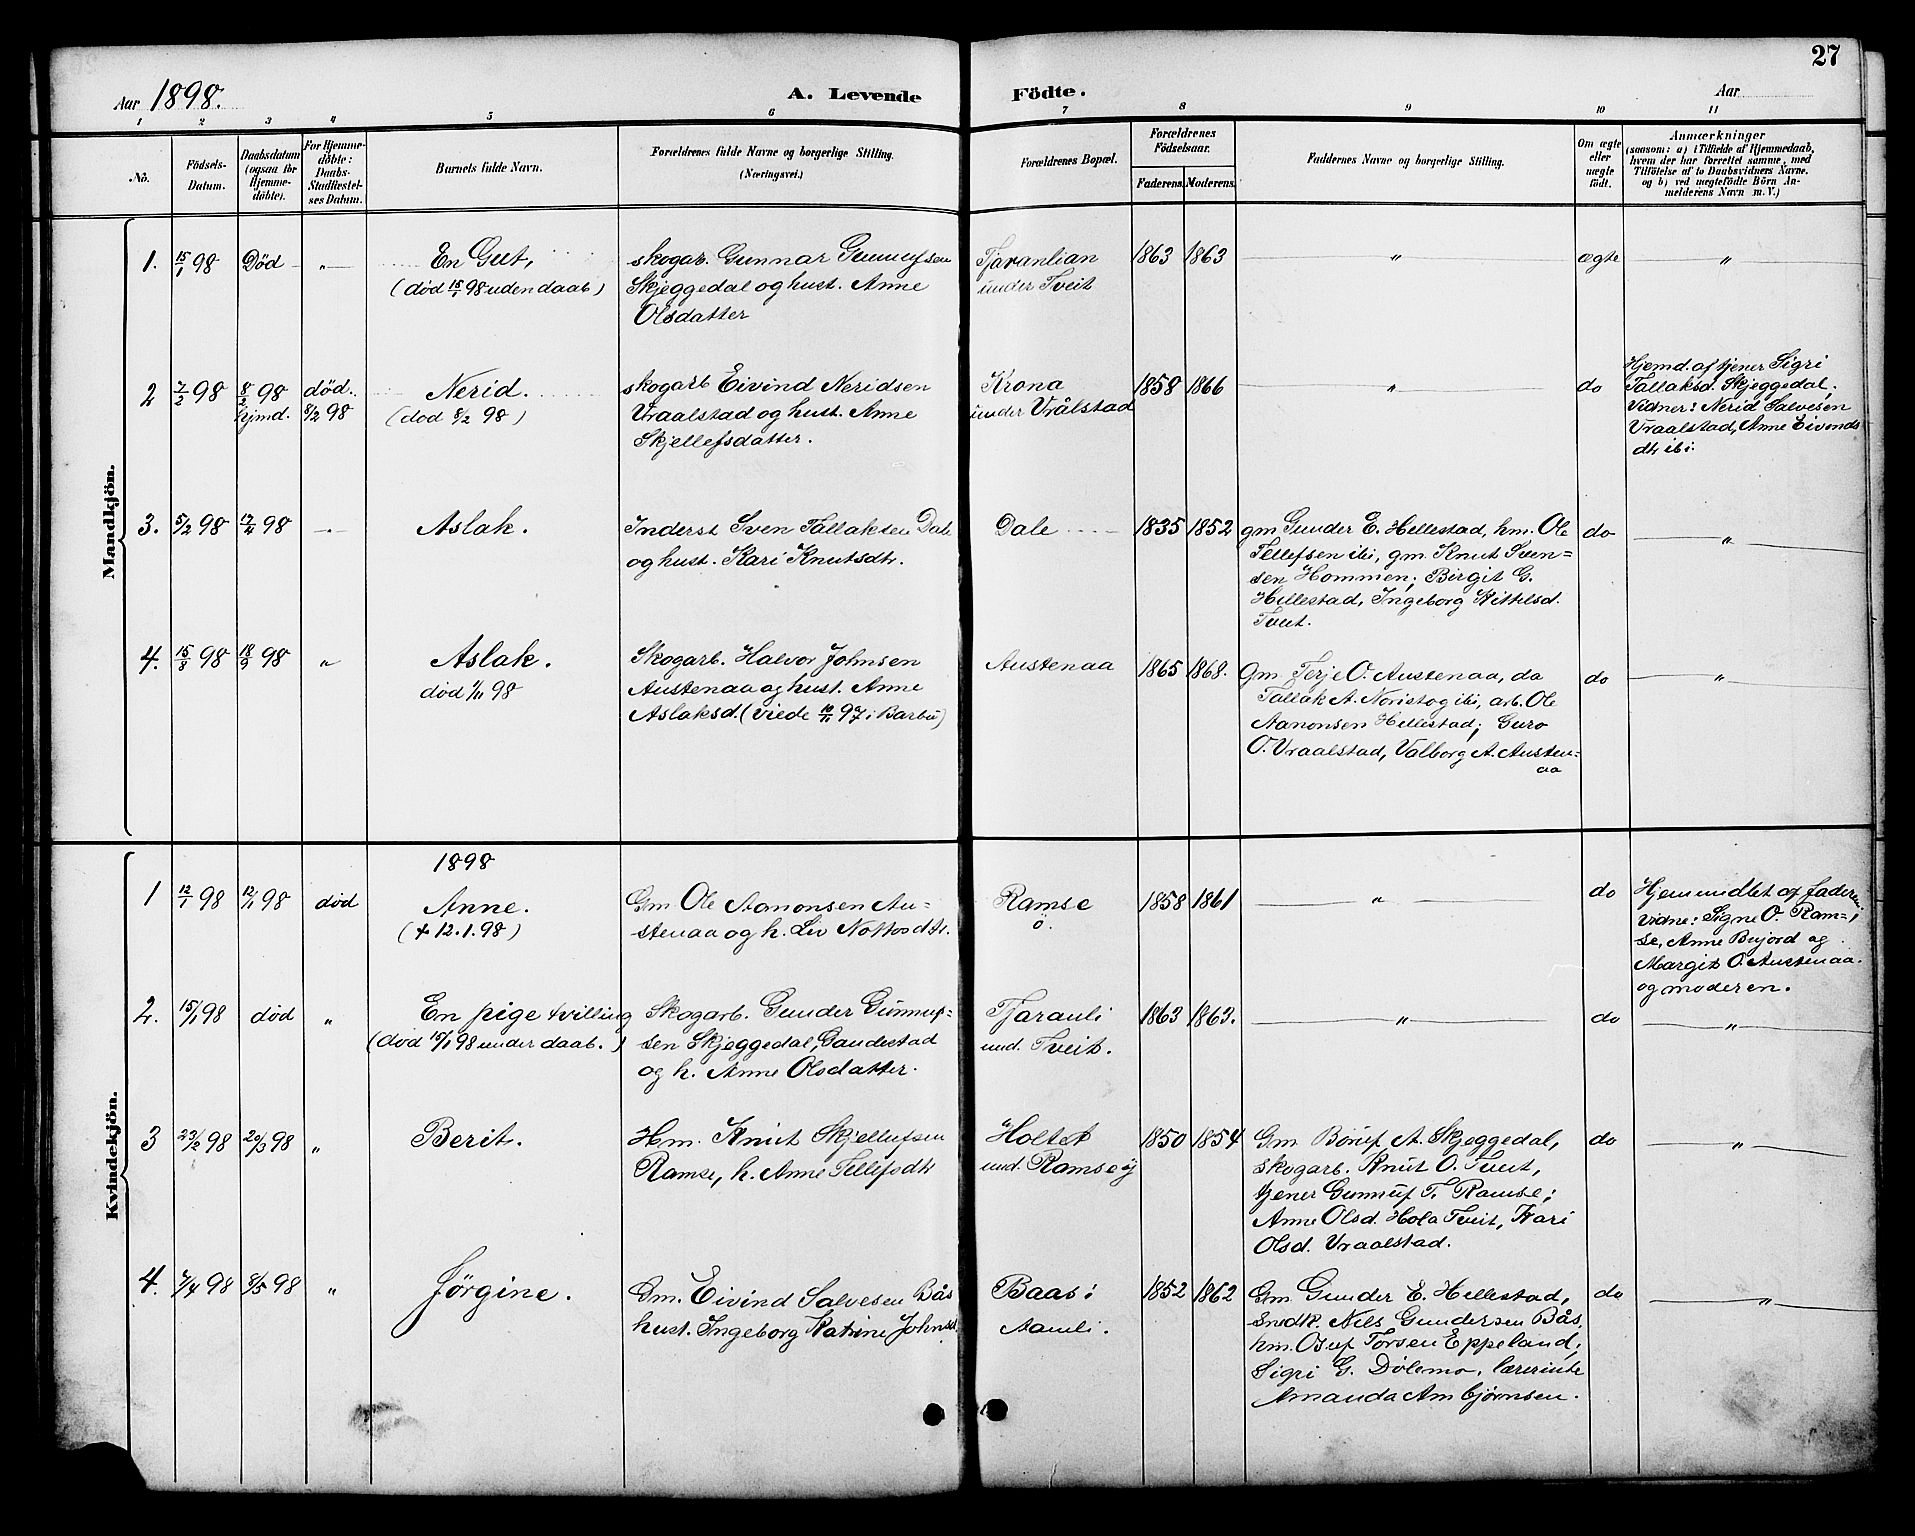 27
Aar 1898. A. Levende Födte. Aar
1 2 3 4 5 6 7 8 9 10 11
No.
Födsels-
Datum.
Daabsdatum
(ogsaa for
Hjemme-
döbte).
For Hjemme-
döbte:
Daabs-
Stadfæstel-
ses Datum.
Barnets fulde Navn.
Forældrenes fulde Navne og borgerlige Stilling.
(Næringsvei.)
Forældrenes Bopæl.
Forældrenes
Födselsaar.
Faderens. Moderens.
Faddernes Navne og borgerlige Stilling.
Om ægte
eller
uægte
födt.
Anmærkninger
(saasom: a) i Tilfælde af Hjemmedaab,
hvem der har forrettet samme, med
Tilföielse af to Daabsvidners Navne,
og b) ved uægtefödte Börn An-
melderens Navn m. V.)
Mandkjön.
1. 15/1 98 Död „ En Gut,
(död 15/1 98 uden daab)
skogarb. Gunnar Gunnufsen
Skjeggedal og hust. Anne
Olsdatter
Tjaranlian
under Tveit
1863 1863 „ ægte „
2 7/2 98 8/2 98
Hjmd.
død.
8/2 98
Nerid.
(død 8/2 98)
skogarb Eivind Neridsen
Vraalstad og hust. Anne
Skjellefsdatter.
Krona
under Vrålstad
1858 1866 „ do
Hjemd. af tjener Sigri
Tallaksd. Skjeggedal.
Vidner: Nerid Salvesen
Vraalstad, Anne Eivinds
dtr ibi.
3. 5/2 98 17/4 98 Aslak.
Inderst Sven Tallaksen Dale
og hust. Kari Knutsdtr.
Dale
1835 1852
gm Gunder E. Hellestad, hm. Ole
Tellefsen ibi, gm. Knut Sven-
sen Hommen; Birgit G.
Hellestad, Ingeborg Kittelsd.
Tveit.
do „
4. 15/8 98 18/9 98 „ Aslak.
død 1/11 98
Skogarb. Halvor Johnsen
Austenaa og hust. Anne
Aslaksd. (viede 10/11 97 i Barbu)
Austenaa
1865 1868.
Gm Terje O. Austenaa, do
Tallak A. Noristog ibi, arb. Ole
Aanonsen Hellestad; Guro
O. Vraalstad, Valborg A. Austen-
aa
do „
Kvindekjön.
1898
1 12/1 98 12/1 98 død Anne.
(+ 12.1.98)
Gm Ole Aanonsen Au-
stenaa og h. Liv Nottosdtr.
Ramse
ö.
1858 1861 „ do
Hjemmedbt af faderen;
vidne: Signe O. Ram-
se, Anne Bujord og
Margit O. Austenaa.
og moderen.
2. 15/1 98 død „ En pige tvilling
(død 15/1 98 under daab.)
Skogarb. Gunder Gunnuf-
sen Skjeggedal, Gaudestad
og h. Anne Olsdatter.
Tjarauli
und. Tveit.
1863 1863. „ do „
3 23/2 98 20/3 98 „ Berit.
Hm. Knut Skjellufsen
Ramse, h. Anne Tellefsdtr
Holtet
und. Ramse ÿ
1850 1854
Gm Boruf A. Skjeggedal,
skogarb. Knut O. Tveit,
tjener Gunnuf T. Ramse;
Anne Olsd. Hola Tveit, Kari
Olsd. Vraalstad.
do „
4. 7/4 98 8/5 98 „ Jørgine.
Gm. Eivind Salvesen Bås
hust. Ingeborg Katrine Johnsd.
Baas i
Aamli.
1852 1862
Gm Gunder E. Hellestad,
Snedk. Nils Gundersen Bås,
hm. Osuf Torsen Eppeland;
Sigri G. Dølemo, lærerinde
Amanda Am bjørnsen.
do „